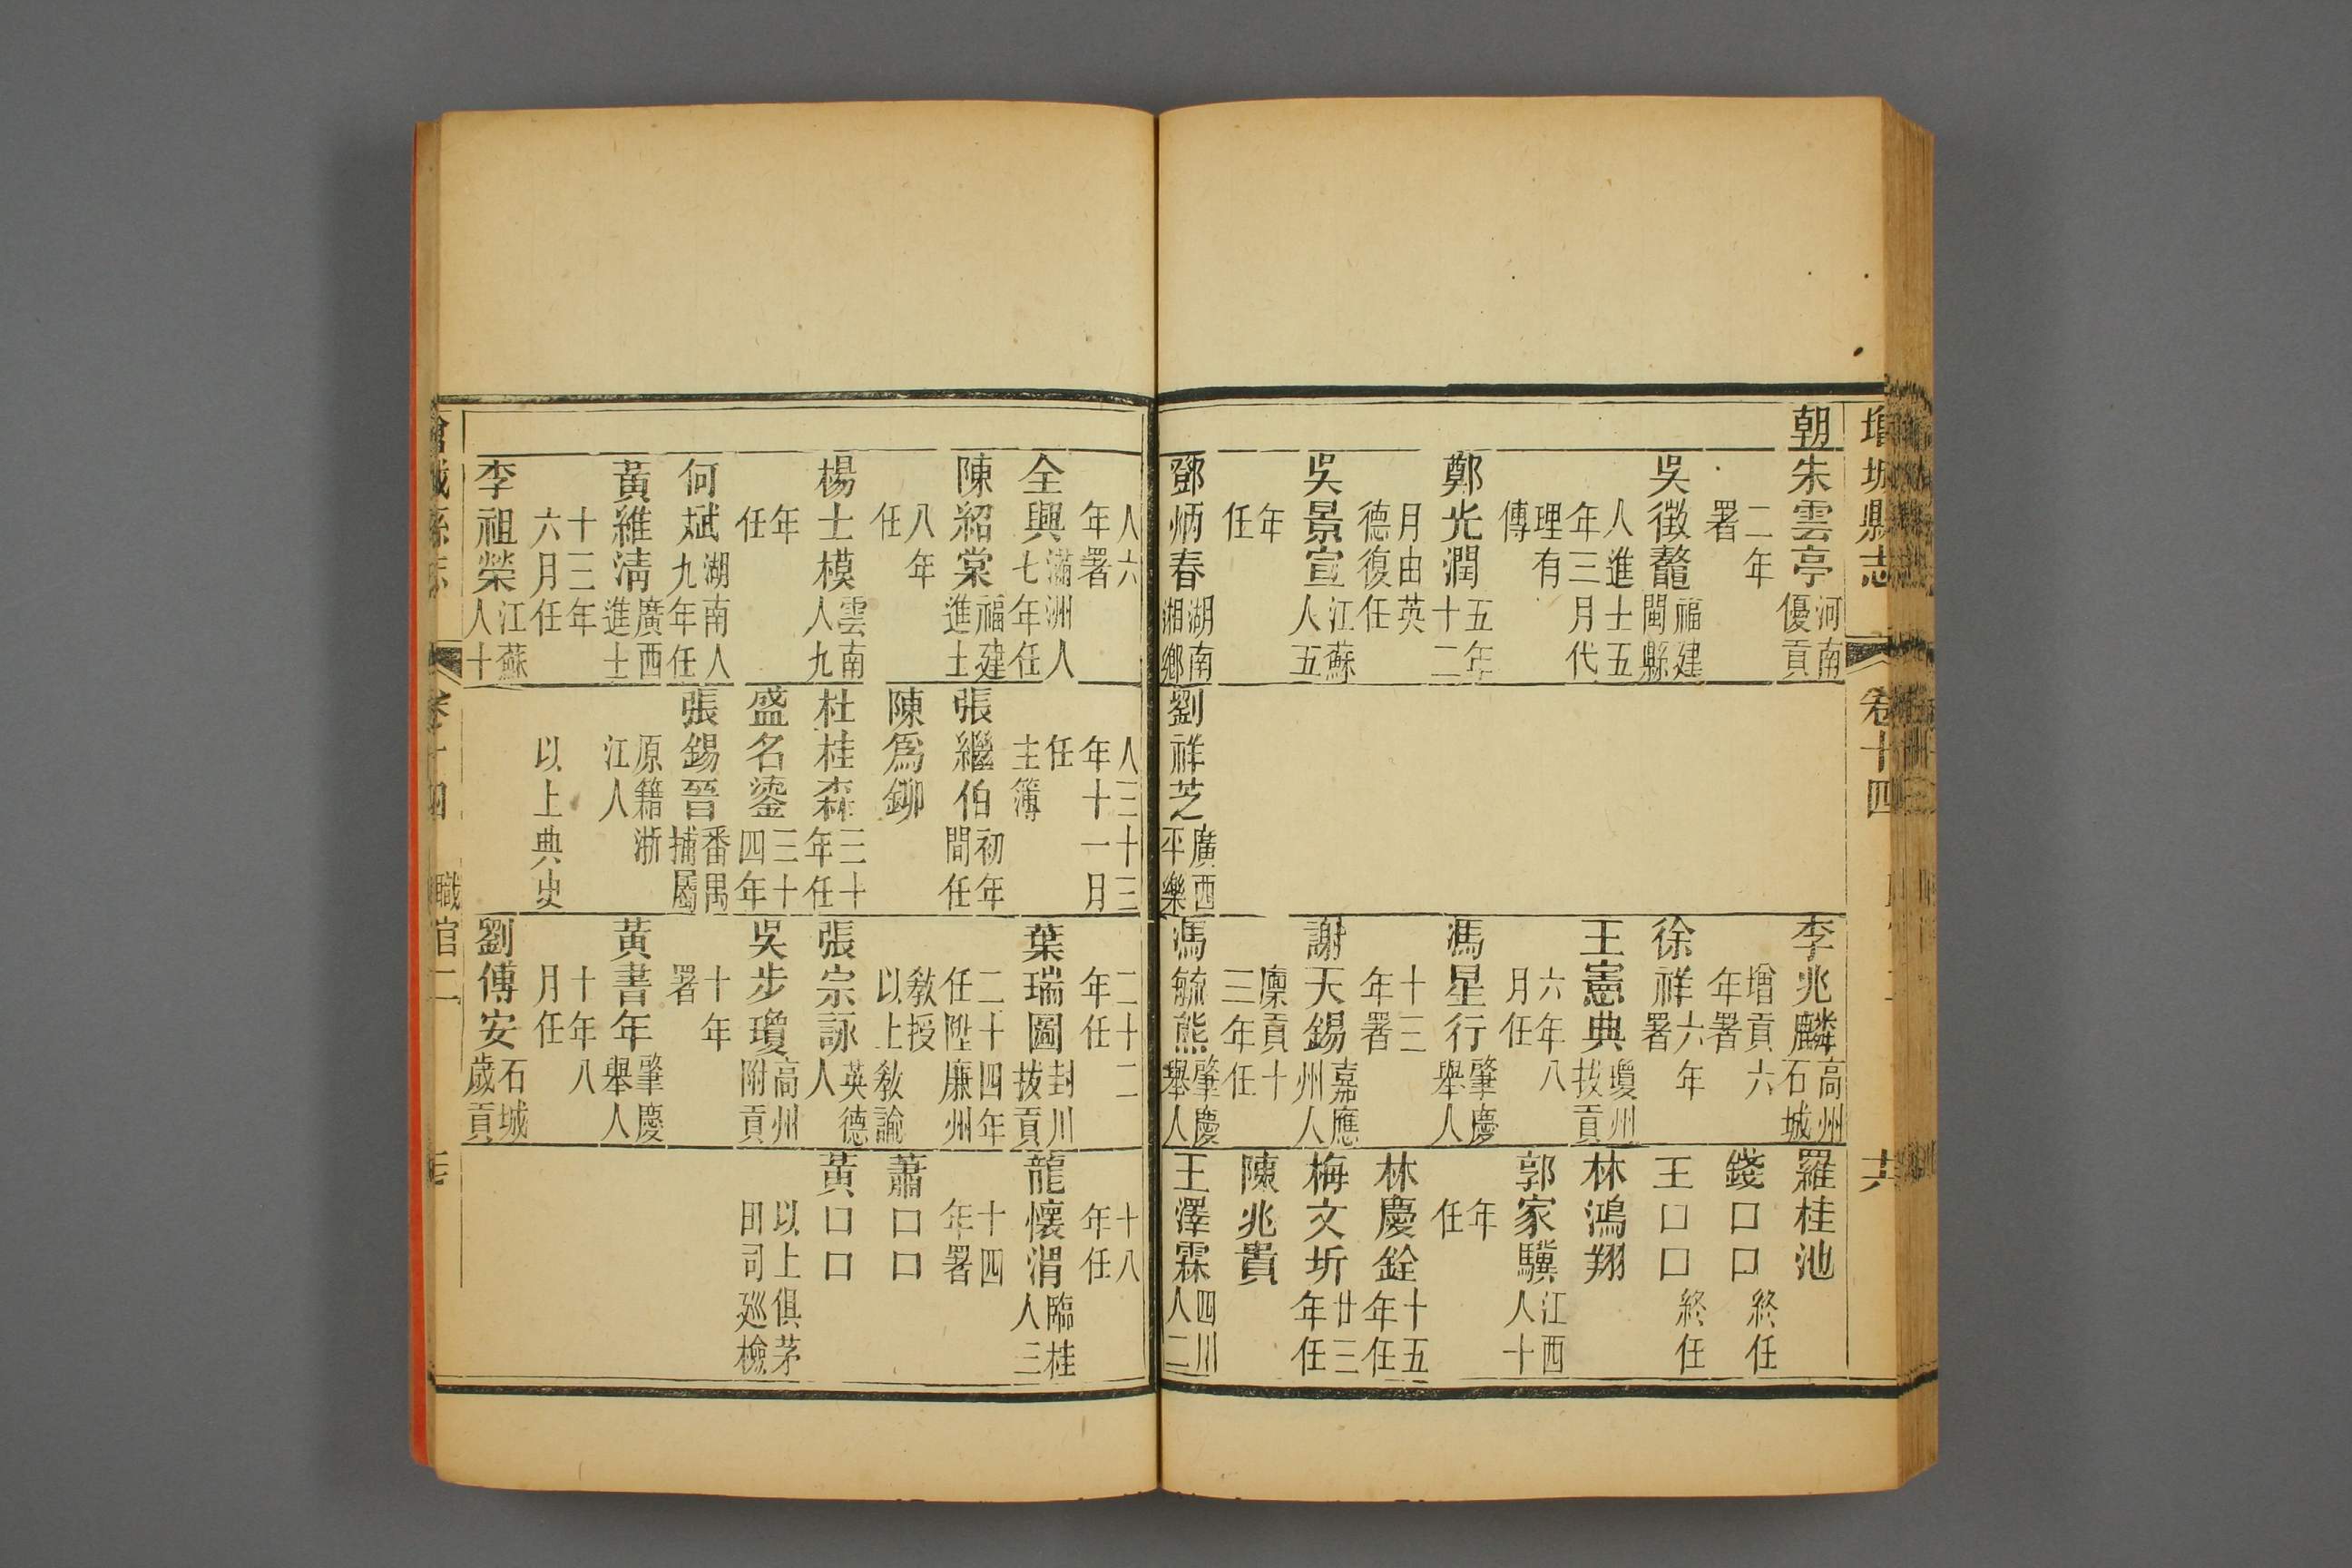 增城縣志 卷十四 十六
朝
朱雲亭 河南優貢
二年署
吳徵鼇 福建閩縣
人進士五年三月代
理有傳
鄭光潤 五年十二
月由英德復任
吳景宣 江蘇人五
年任
鄧炳春 湖南湘鄉
劉祥芝 廣西平樂
李兆麟 高州石城
增貢六年署
徐祥 六年署
王憲典 瓊州拔貢
六年八月任
馮星行 肇慶舉人
十三年署
謝天錫 嘉應州人
廩貢十三年任
馮毓熊 肇慶舉人
羅桂池
錢口口 終任
王口口 終任
林鴻翔
郭家驥 江西人十
年任
林慶銓 十五年任
梅文圻 廿三年任
陳兆貴
王澤霖 四川人二
人六年署
全興 滿洲人七年任
陳紹棠 福建進士
八年任
楊士模 雲南人九
年任
何斌 湖南人九年任
黃維清 廣西進士
十三年六月任
李祖榮 江蘇人十
人三十三年十一月
任主簿
張繼伯 初年間任
陳爲鉚
杜桂森 二十年任
盛名鎏 三十四年
張錫晉 番禺捕屬
原籍浙江人
以上典史
二十二年任
葉瑞圖 封川拔貢
二十四年任陞廉州
教授以上教諭
張宗詠 英德人
吳步瓊 高州附貢
十年署
黃書年 肇慶舉人
十年八月任
劉傳安 石城歲貢
十八年任
龍懷渭 臨桂人三
十四年署
蕭口口
黃口口
以上俱茅田司廵檢
職官二